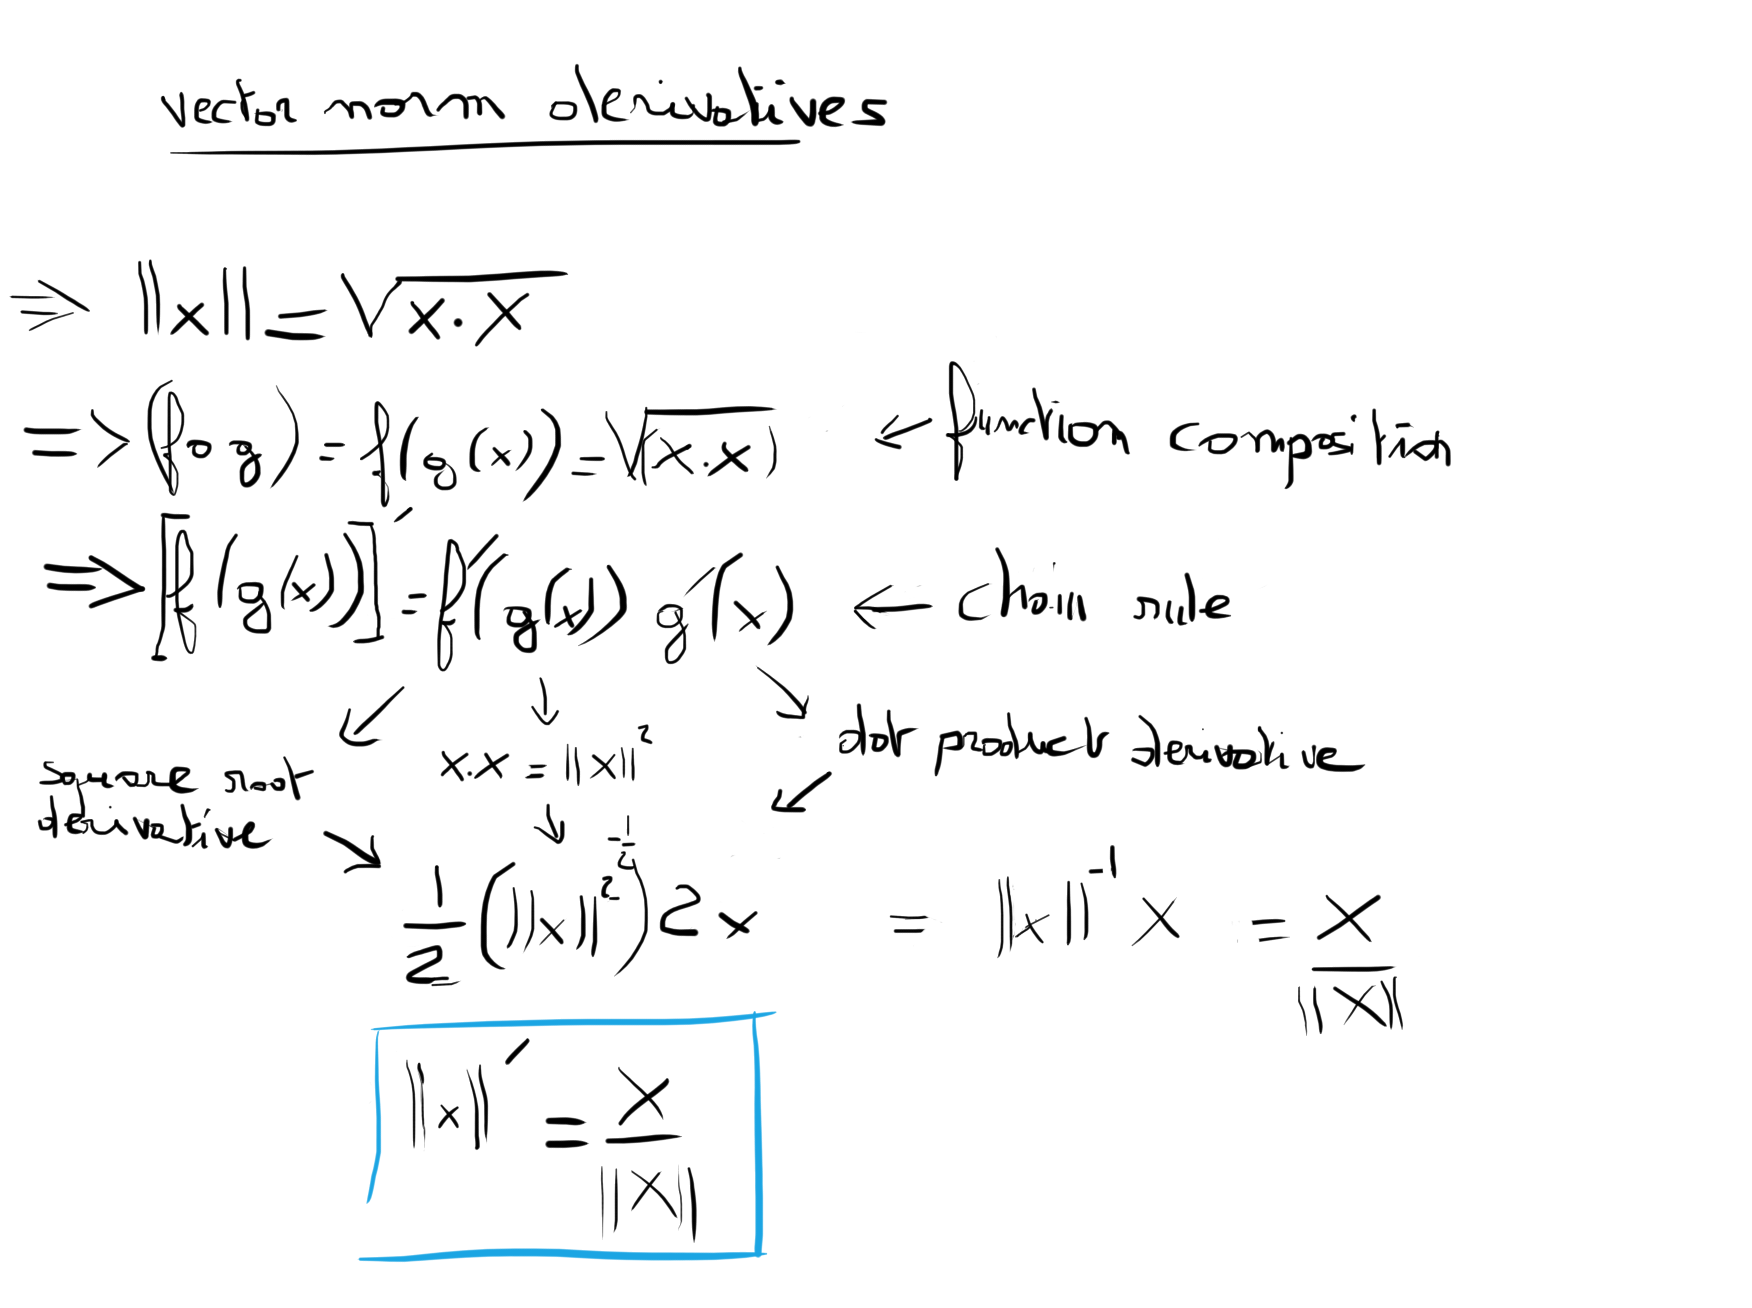 vector norm derivatives
⇒ ||x|| = √x·x
=> (f o g) = f(g(x)) = √(x·x) ← function composition
=> [f(g(x))]′ = f′(g(x)) g′(x) ← chain rule
↙ ↓ ↘
x.x = ||x||² dot product derivative
square root
derivative ↘ ↓ ↙
1/2 (||x||²)^(-1/2) 2x = ||x||⁻¹ x = x/||x||
||x||′ = x/||x||